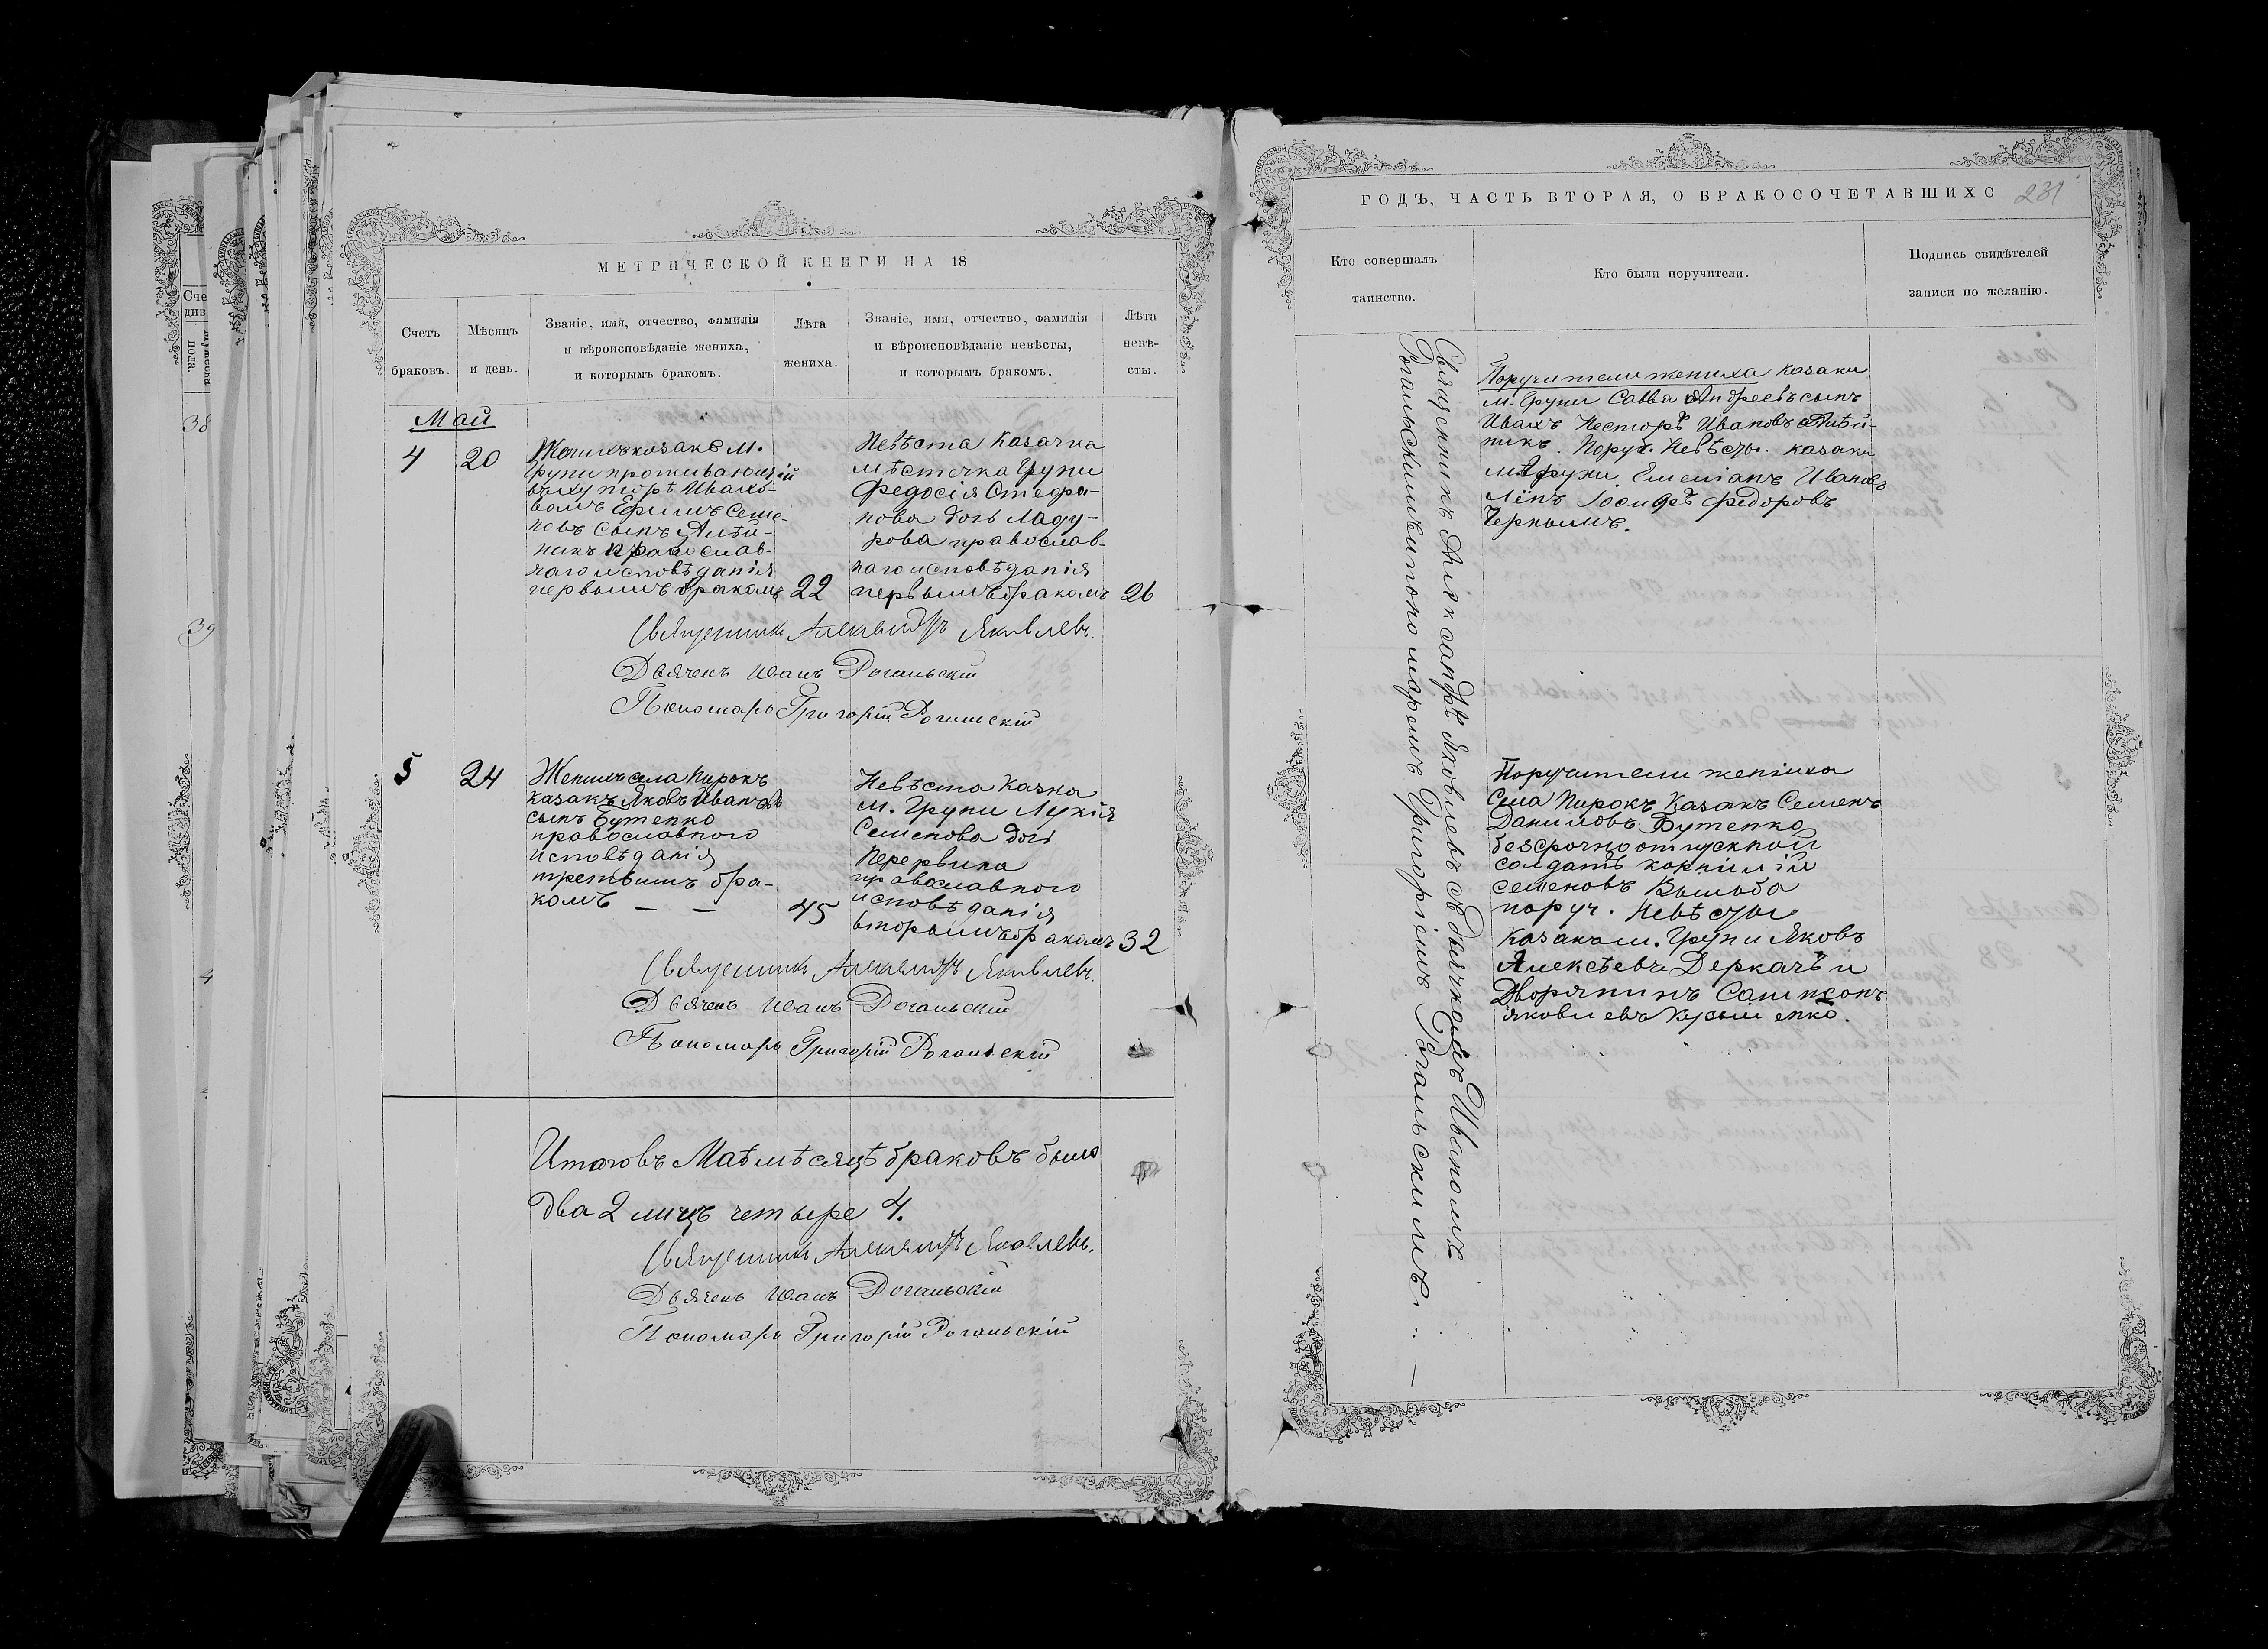 МЕТРИЧЕСКОЙ КНИГИ НА 18
Счетъ браковъ.
Мѣсяцъ и день.
Званіе, имя, отчество, фамилія
и вѣроисповѣданіе жениха,
и которымъ бракомъ.
Лѣта жениха.
Званіе, имя, отчество, фамилія
и вѣроисповѣданіе невѣсты,
и которымъ бракомъ.
Лѣта невѣ-
сты.
Май
4
20
Женихъ козакъ м.
Груни проживающій
въ хуторѣ Ивахо-
вомъ Ефимъ Семе-
новъ сынъ
православ-
наго исповѣданія
первымъ бракомъ
22
Невѣста казачка
мѣстечка Груни
Федосія Стефа-
нова дочь
православ-
наго исповѣданія
первымъ бракомъ
26
Священникъ Александръ Яковлевъ.
Дьячекъ Иванъ Рогальскій
Пономарь Григорій Рогальскій
5
24
Женихъ села Пирокъ
казакъ Яковъ Ивановъ
сынъ Бутенко
православного
исповѣданія
третьимъ бра-
комъ — —
45
Невѣста Казчка
м. Груни Лукія
Семенова дочь
православного
исповѣданія
вторымъ бракомъ
32
Священникъ Александръ Яковлевъ.
Дьячекъ Иванъ Рогальскій
Пономарь Григорій Рогальскій
Итого въ Маѣ мѣсяцѣ браковъ было
два 2 лицъ четыре 4.
Священникъ Александръ Яковлевъ.
Дьячекъ Иванъ Рогальскій
Пономарь Григорій Рогальскій
ГОДЪ, ЧАСТЬ ВТОРАЯ, О БРАКОСОЧЕТАВШИХС
231
Кто совершалъ
таинство.
Кто были поручители.
Подпись свидѣтелей
записи по желанію.
Священникъ Александръ Яковлевъ съ дьячкомъ Иваномъ
Рогальскимъ и пономаремъ Григоріемъ Рогальскимъ. —
Поручители жениха казаки
м. Груни Савва Андреевъ сынъ
Ивахъ Несторъ Ивановъ
Поруч. Невѣсты. казаки
м. Груни Емеліанъ Ивановъ
Іосифъ Федоровъ
Поручители женіиха
Села Пирокъ Казакъ Семенъ
Даниловъ Бутенко
безсрочноотпускной
солдатъ корнилій
семеновъ
поруч. Невѣсты
Казаки м. Груни Яковъ
Алексѣевъ Деркачъ и
Дворянинъ Сампсонъ
Яковлевъ